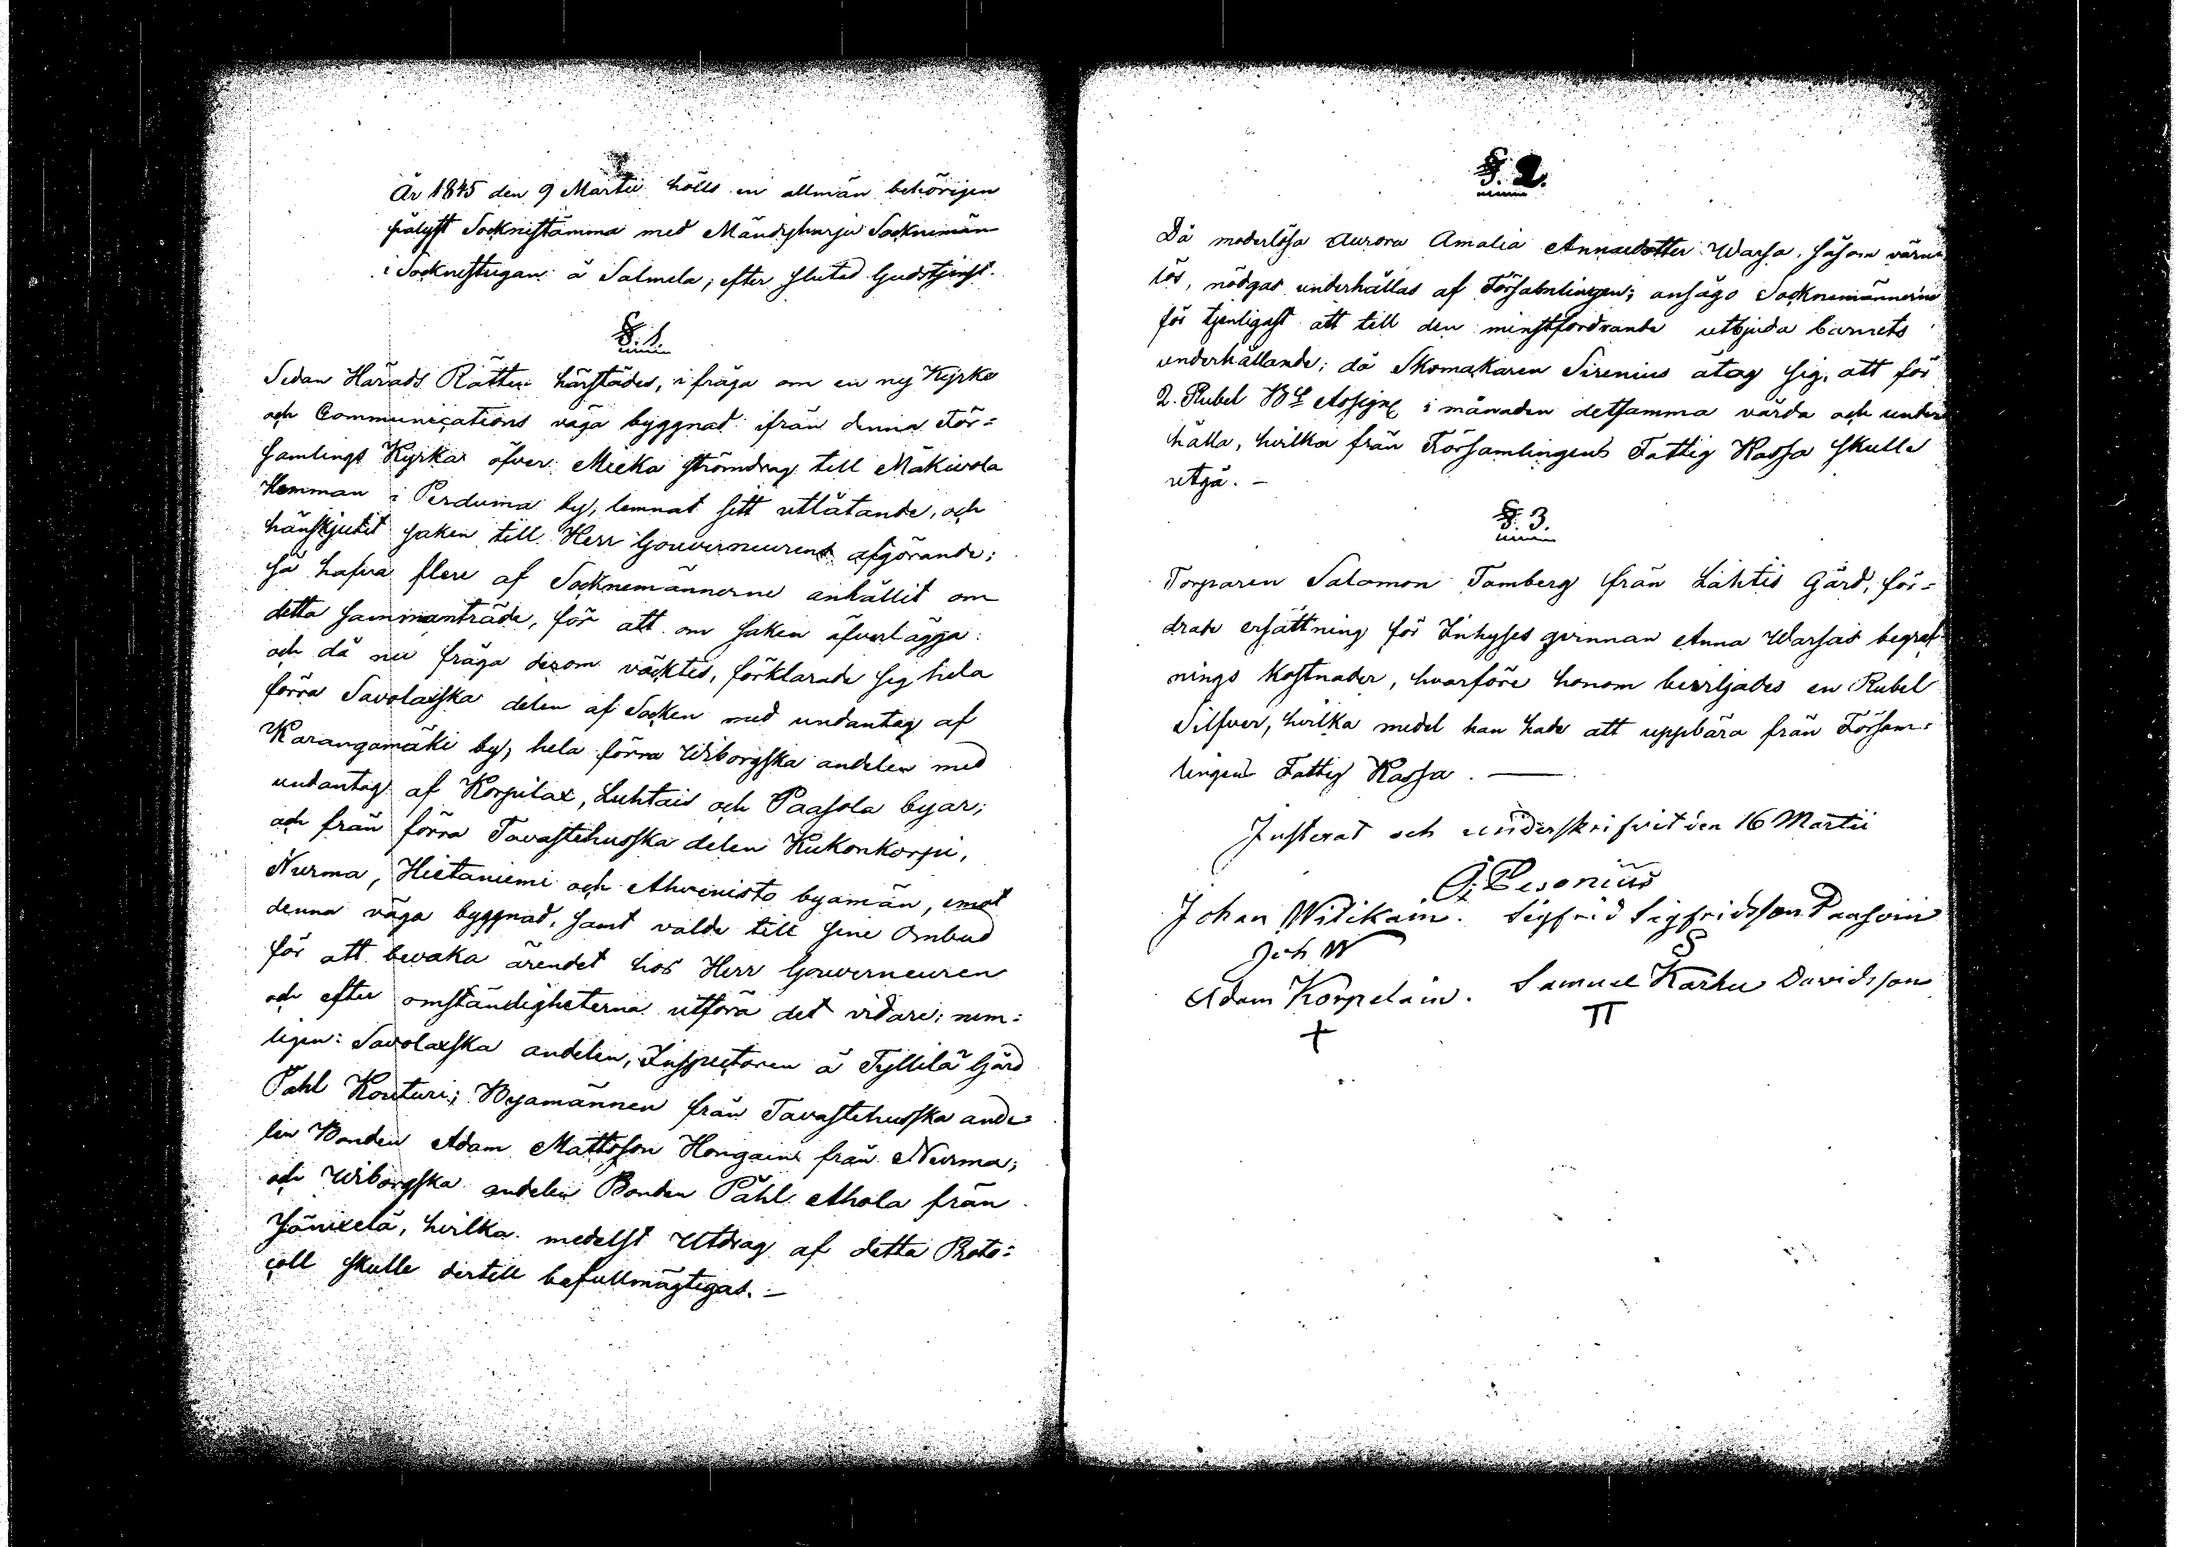 År 1845 den 9 Martii hölls en allmän behörigen
pålyst Socknestämma med Mändyharju Socknemän
i Socknestugan å Salmela, efter slutad Gudstjenst.
§. 1.
Sedan Härads Rätten härstädes, i fråga om en ny Kyrko
och Communications väga byggnad ifrån denna För=
samlings Kyrka öfver Mieka strömdrag till Mäkivola
Hemman i Perduma by, lemnat sitt utlåtande, och
hänskjutit saken till Herr Gouverneurens afgörande;
så hafva flere af Socknemännerne anhållit om
detta sammanträde, för att om saken öfverlägga:
och då nu fråga derom väcktes, förklarade sig hela
förra Savolaxska delen af Socken med undantag af
Karangamäki by, hela förra Wiborgska andelen med
undantag af Korpilax, Luhtais och Paasola byar;
och från förra Tavastehusska delen Kukonkorpi,
Nurma, Hietaniemi och Ahvenisto byamän, emot
denna väga byggnad, samt valde till sine Ombud
för att bevaka ärendet hos Herr Gouverneuren
och efter omständigheterna utföra det vidare; nem=
ligen: Savolaxska andelen, Inspectoren å Tyllilä Gård
Pahl Kouturi; Byamännen från Tavastehusska ande
len Bonden Adam Mattsson Hongain från Nurma;
och Wiborgska andelen Bonden Påhl Ahola från
Jänixelä, hvilka medelst Utdrag af detta Proto=
coll skulle dertill befullmägtigas. –
§. 2.
Då moderlösa Aurora Amalia Annaedotter Warsa, såsom värn
lös, nödgas underhållas af Församlingen; ansågo Socknemännerne
för tjenligast att till den minstfordrande utbjuda barnets
underhållande; då Skomakaren Sirenius åtog sig, att för
2. Rubel Bco Assigne i månaden detsamma vårda och under
hålla, hvilka från Församlingens Fattig Kassa skulle
utgå. –
§. 3.
Torparen Salomon Tamberg från Lahtis Gård, for=
drade ersättning för Inhyses qvinnan Anna Warsas begraf=
nings kostnader, hvarföre honom beviljades en Rubel
Silfver, hvilka medel han hade att uppbära från Försam=
lingens Fattig Kassa. —
Justerat och underskrifvit den 16 Martii
G. Pesonius
Johan Witikain. Sigfrid Sigfridsson Paasoin
Joh W S
Adam Korpelain. Samuel Karhu Davidsson
+ π